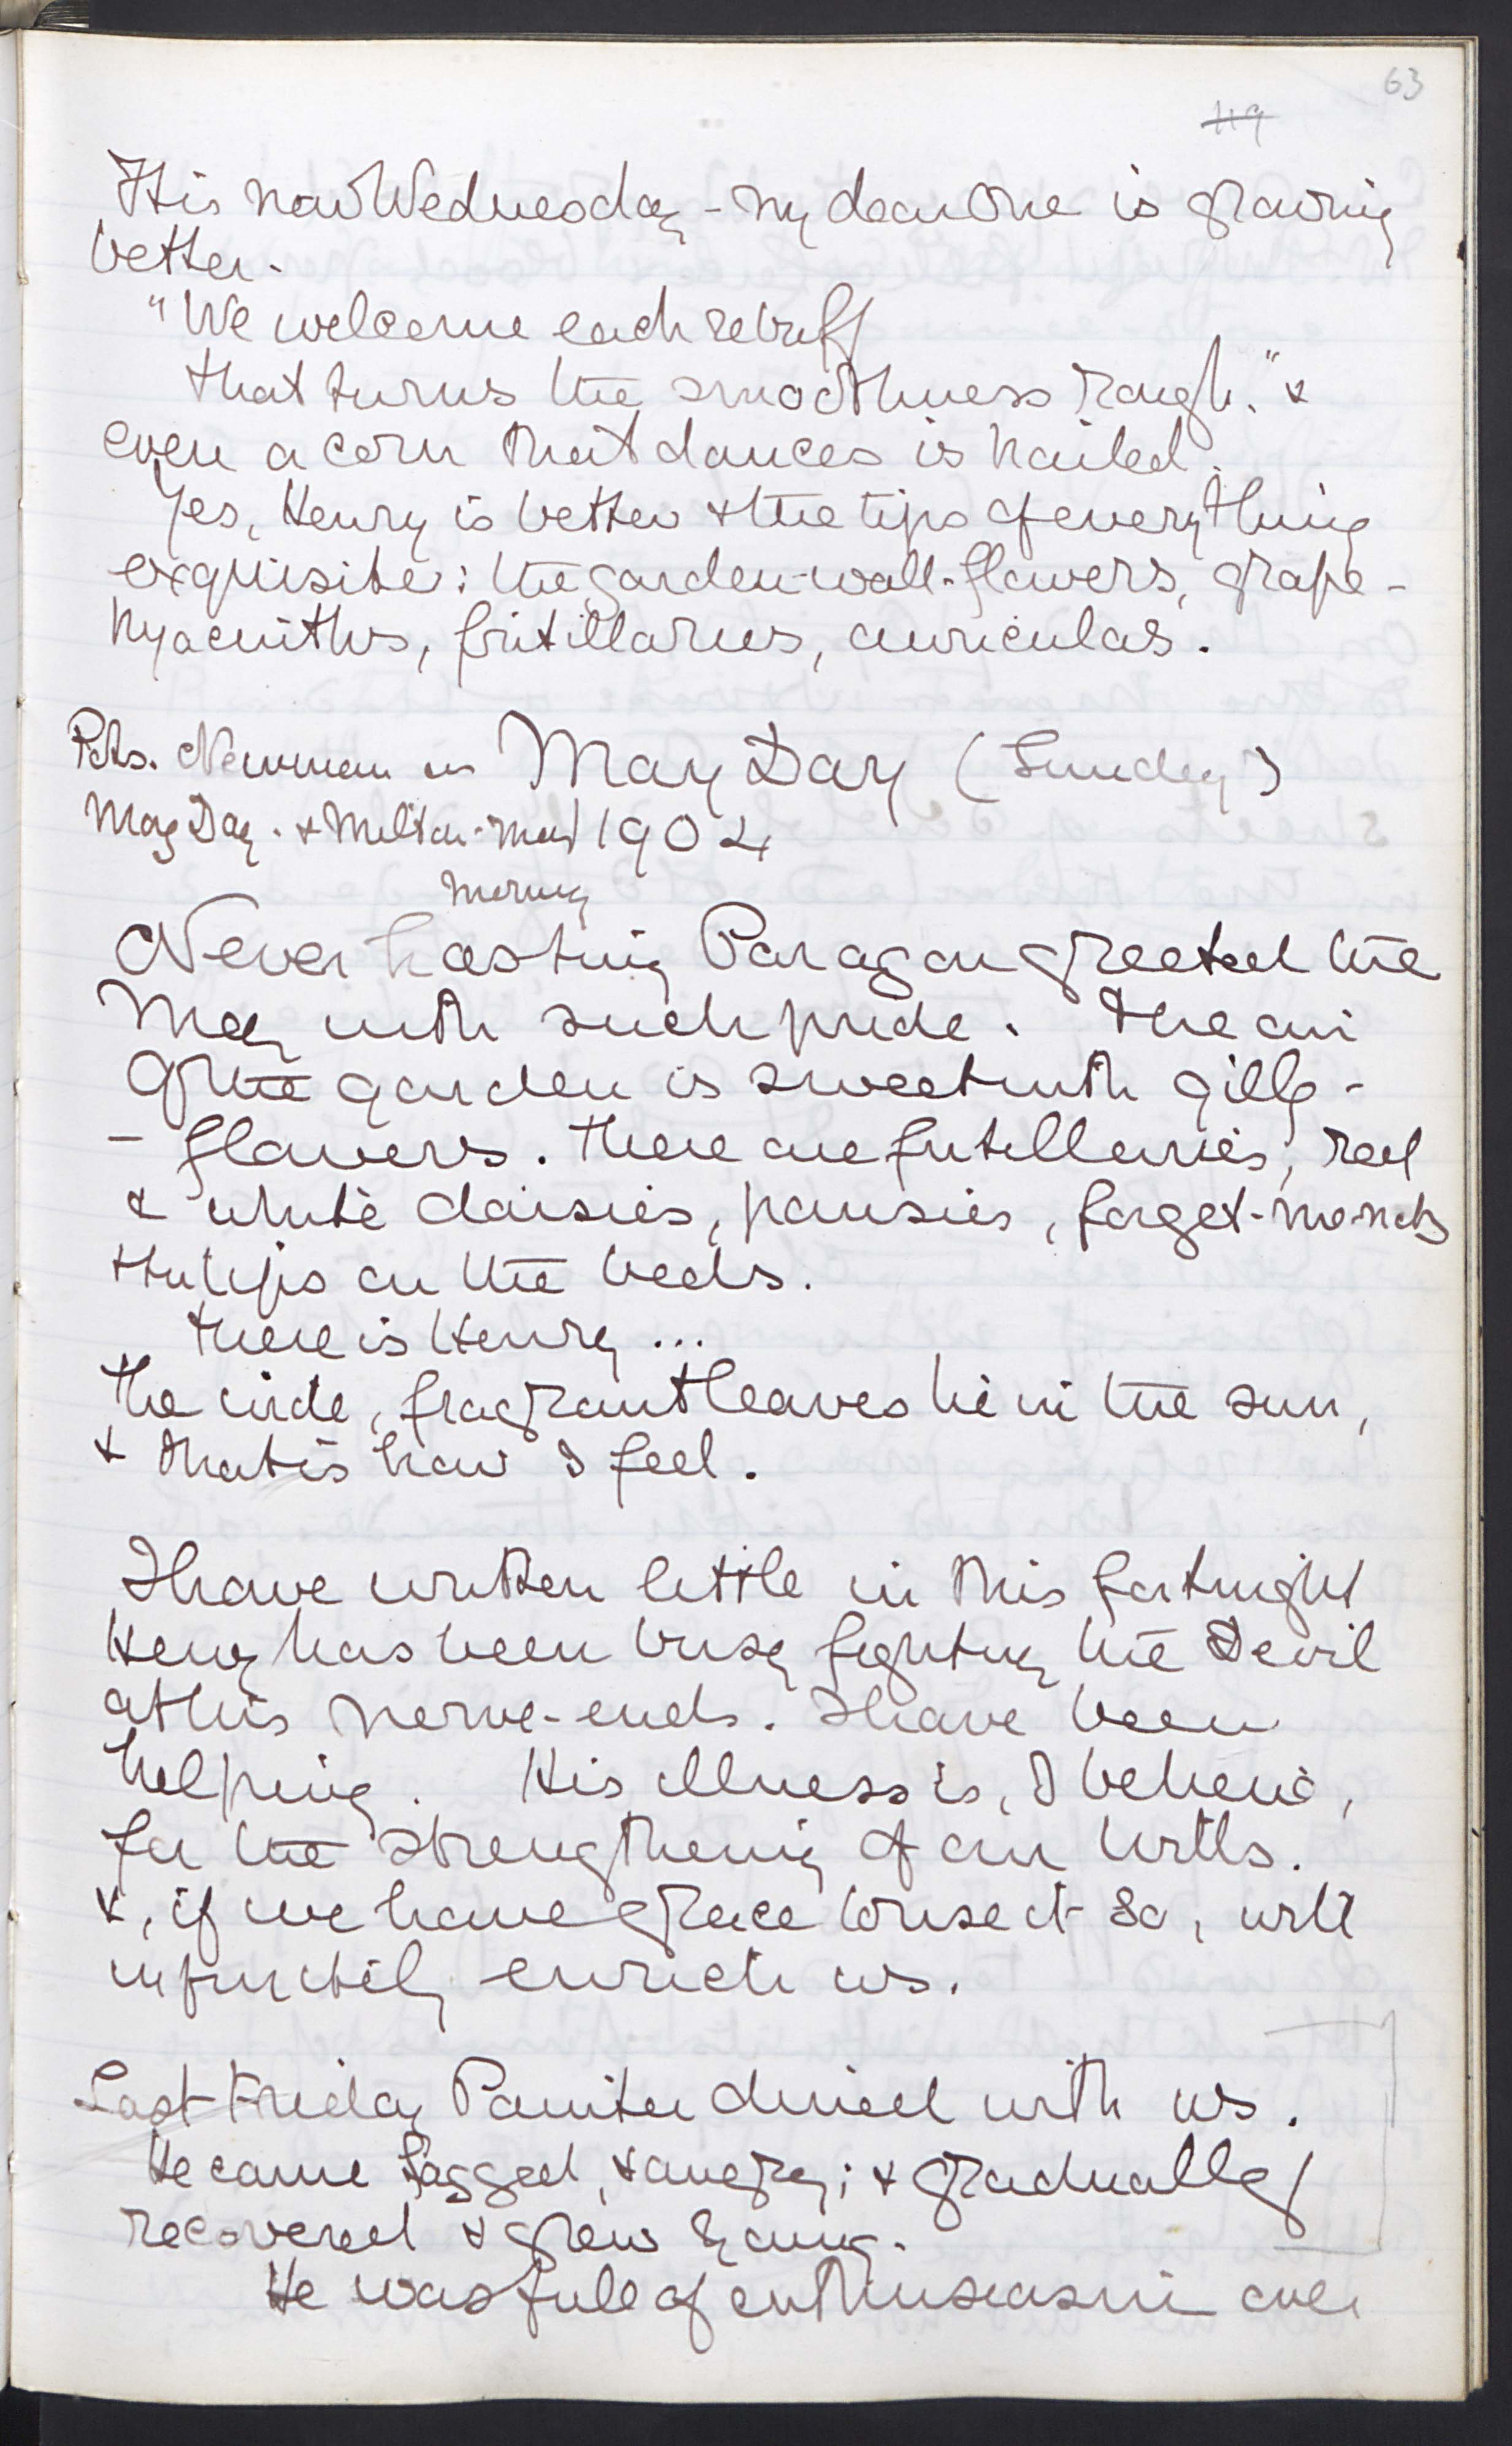 63
119
It is now Wednesday - my dear One is growing
better.
"We welcome each rebuff
that turns the smoothness rough." &
even a corn that dances is hailed.
Yes, Henry is better & the tips of everything
exquisite: the garden-wall-flowers, grape-
hyacinths, fritillaries, auriculas.
May Day (Sunday)
Newman in
May Day. & 1904
morning
Never has tiny Paragon greeted the
May with such pride. The air
of the garden is sweet with gilly-
- flowers. There are fritillaries, red
& white daisies, pansies, forget-me-nots
& tulips in the beds.
There is Henry ...
The wide, fragrant leaves lie in the sun,
& that is how I feel.
I have written little in this fortnight
Henry has been busy fighting the Devil
at his nerve-ends. I have been
helping. His illness is, I believe,
for the strengthening of our wills.
&, if we have grace to use it so, will
infinitely enrich us.
Last Friday Painter dined with us.
He came fagged, & angry; & gradually
recovered & grew young.
He was full of enthusiasm over